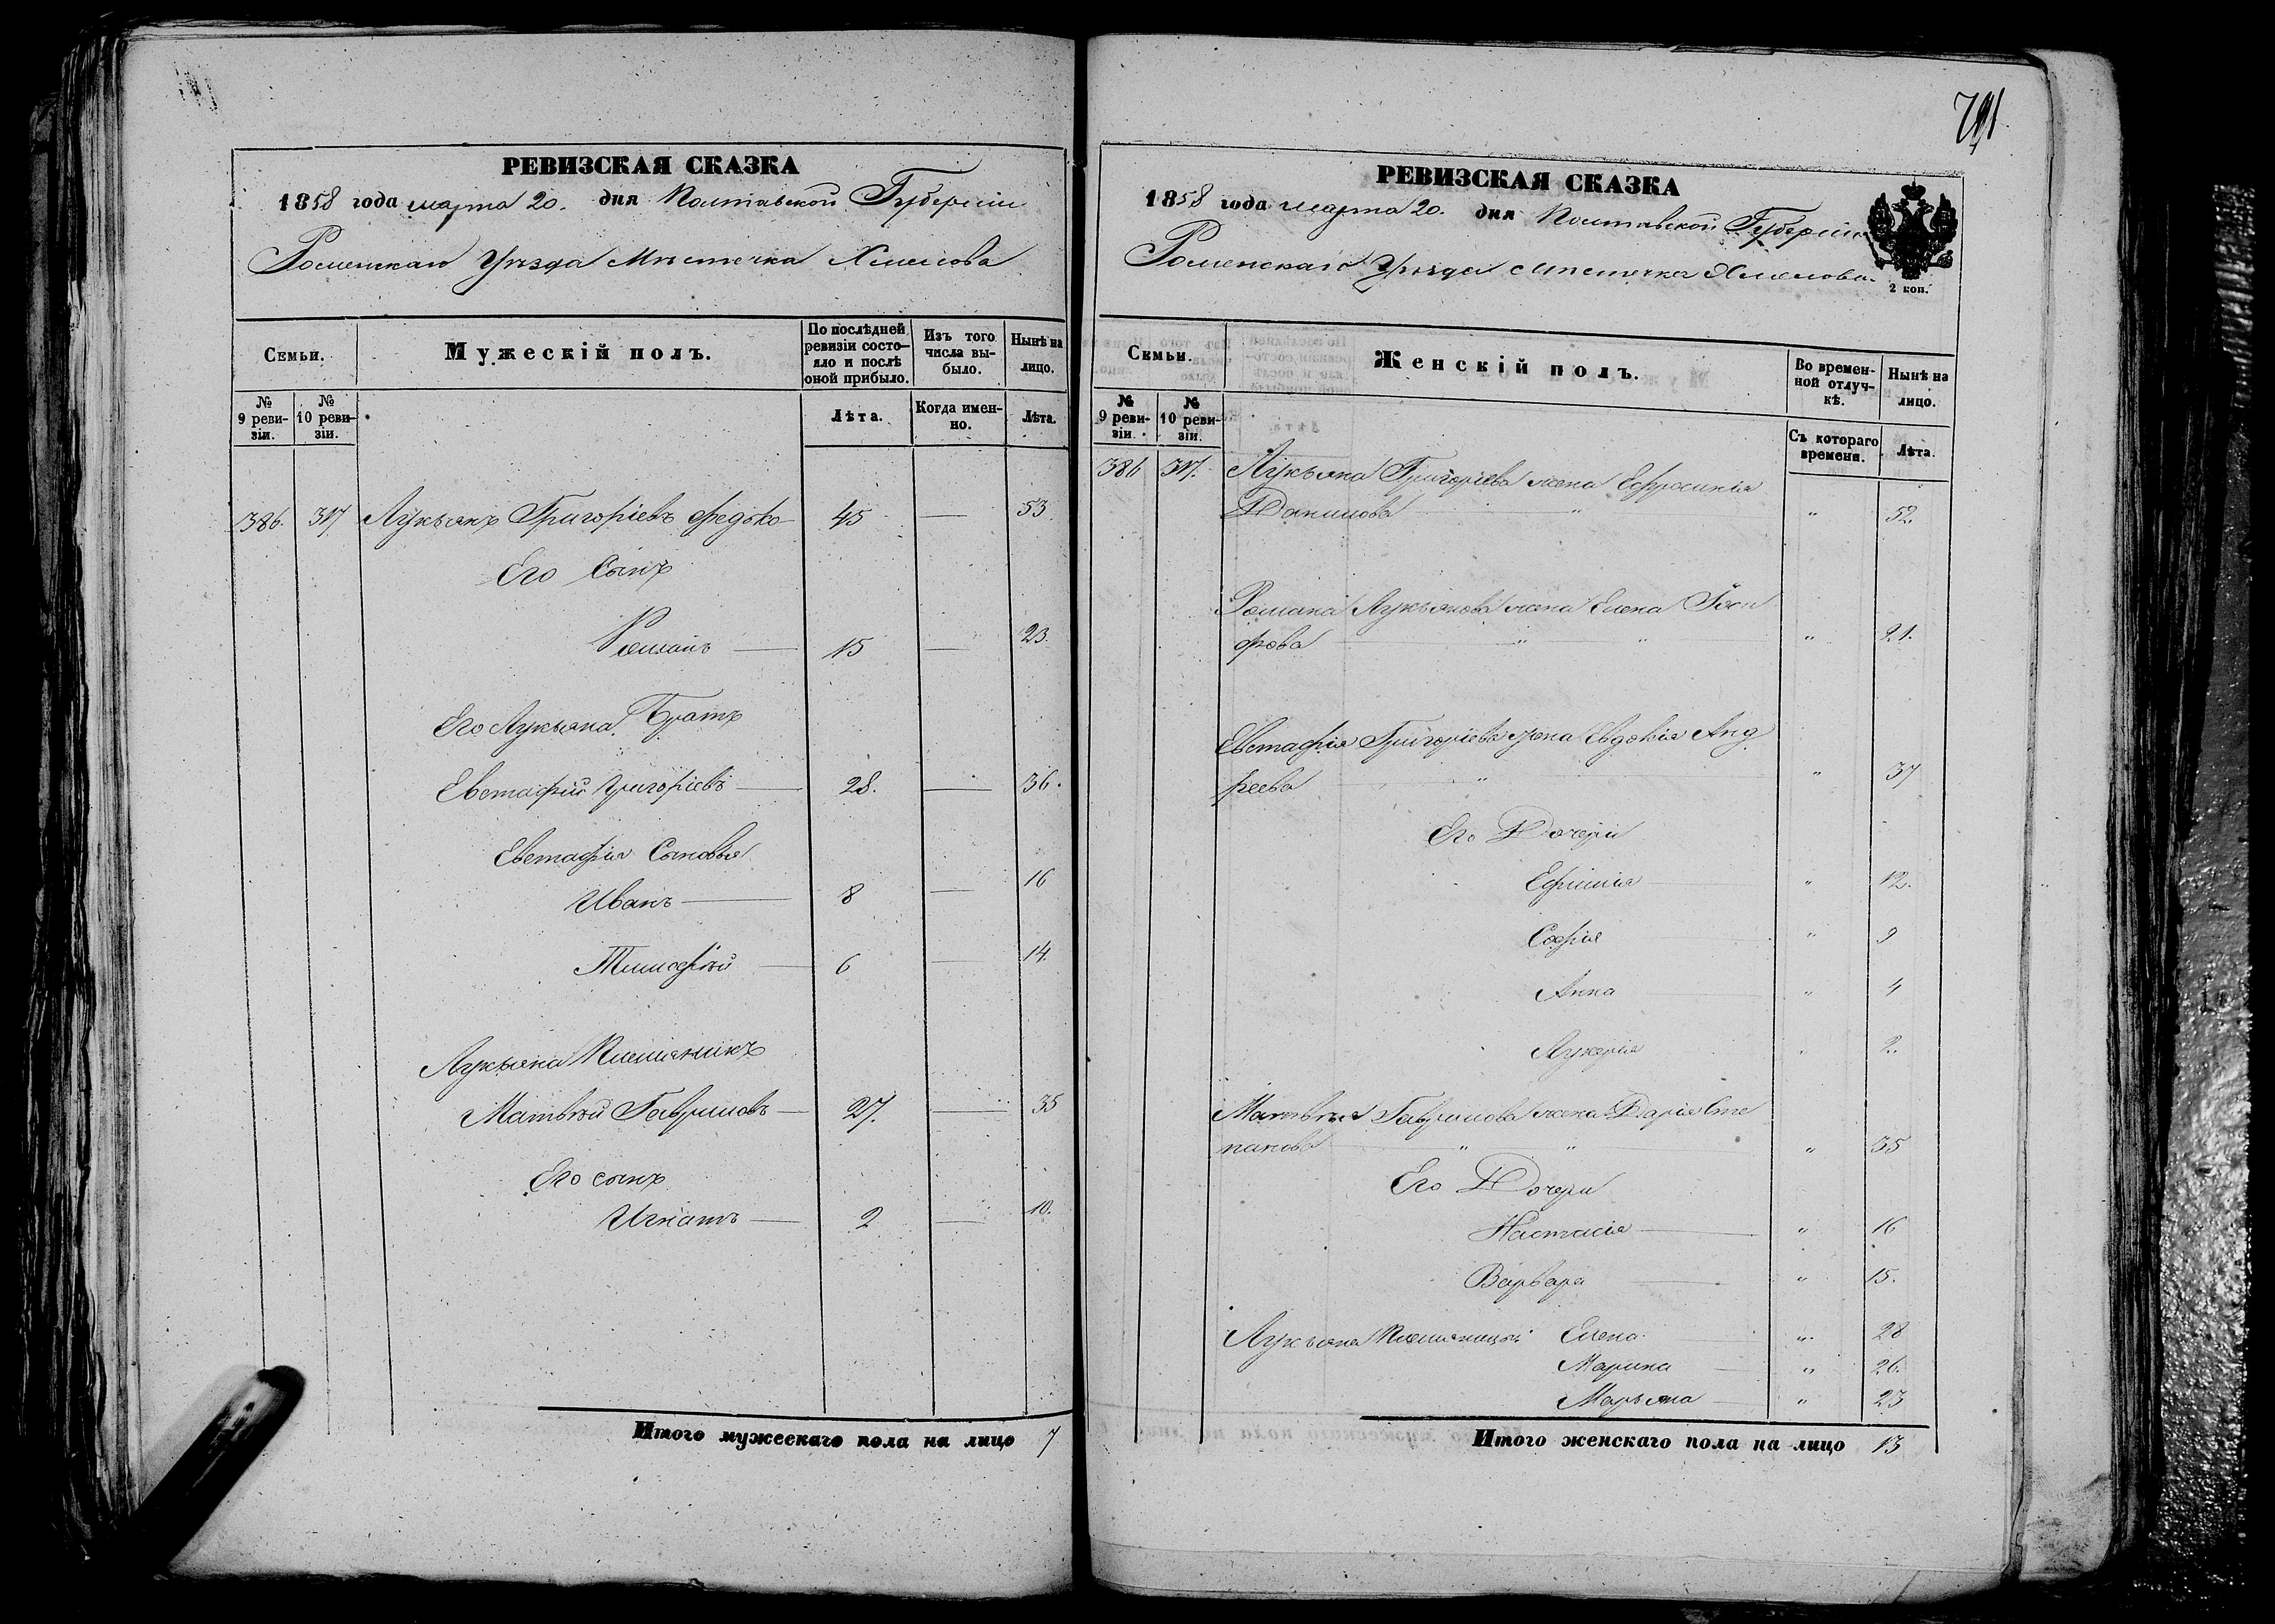 РЕВИЗСКАЯ СКАЗКА
1858 года марта 20. дня Полтавской Губерніи
Роменскаго Уѣзда Мѣстечка Хмелова
Семьи.
Мужескій полъ.
По послѣдней ревизіи состо-
яло и послѣ
оной прибыло.
Изъ того
числа вы-
было.
Нынѣ на
лицо.
№
9 реви-
зіи.
№
10 реви-
зіи.
Лѣта.
Когда имен-
но.
Лѣта.
386. 317 Лукьянъ Григоріевъ Федько 45 — 53
Его Сынъ
Романъ — 15 — 23.
Его Лукьяна Братъ
Евстафій Григоріевъ — 28. — 36.
Евстафія Сыновья
Иванъ — 8 — 16
Тимофѣй — 6 — 14.
Лукьяна Племяникъ
Матвѣй Гавриловъ — 27. — 35
Его сынъ
Игнатъ — 2 — 10.
Итого мужескаго пола на лицо 7
791
РЕВИЗСКАЯ СКАЗКА
1858 года марта 20. дня Полтавской Губерніи
Роменскаго Уѣзда Мѣстечка Хмелова.
2 коп.
Семьи.
Женскій полъ.
Во времен-
ной отлуч-
кѣ.
Нынѣ на
лицо.
№
9 реви-
зіи.
№
10 реви-
зіи.
Съ котораго
времени.
Лѣта.
386 317. Лукьяна Григоріева жена Ефросинія
Данилова " " 52.
Романа Лукьянова жена Елена
фова " " " 21.
Евстафія Григоріева жена Евдокія Анд
реева " " 37
Его Дочери
Ефимія " 12.
Софія " 9
Анна " 4
Лукерія " 2.
Матвѣя Гаврилова жена Дарія Сте
панова " " " 35
Его Дочери
Настасія " 16
Варвара " 15.
Лукьяна Племяницы: Елена " 28
Марина " 26.
Марьяна " 23
Итого женскаго пола на лицо 13